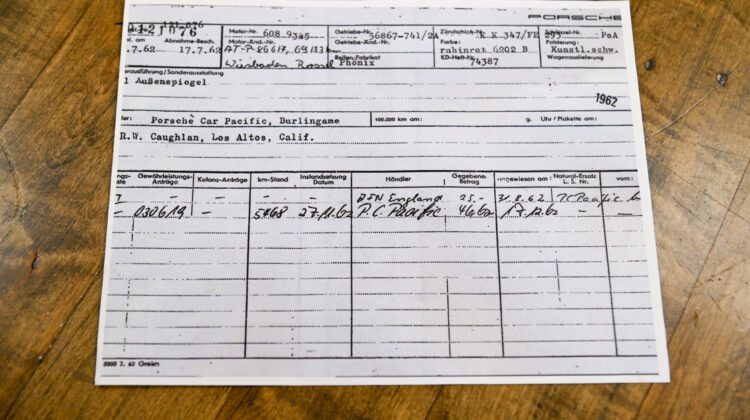 PORSCHE
121 076
121076 Motor-Nr. 608 9345 Getriebe-Nr. 36867-741/2A Zündschloß-Nr. K K 347/FE 295 Schlüssel-Nr. PoA
am Abnahme-Besch. Motor-Änd.-Nr. Getriebe-Änd.-Nr. Farbe: Polsterung:
.7.62 17.7.62 rubinrot 6202 B Kunstl.schw.
Wiesbaden Reifen-Fabrikat Phönix KD-Heft-Nr. 74387 Wagenauslieferung
erausführung/Sonderausstattung
1 Außenspiegel
1962
ler: Porsche Car Pacific, Burlingame 100.000 km am: g. Uhr/Plakette am:
R.W. Caughlan, Los Altos, Calif.
Gewährleistungs-Anträge Kulanz-Anträge km-Stand Instandsetzung Datum Händler Gegebene- Betrag Natural-Ersatz L. S. Nr. vom:
- - - - England 25.- 31.8.62 P.C. Pacific
- 030619 - 5468 27.11.62 P.C. Pacific 46.62 17.12.62 - -
5000 2. 62 Greien